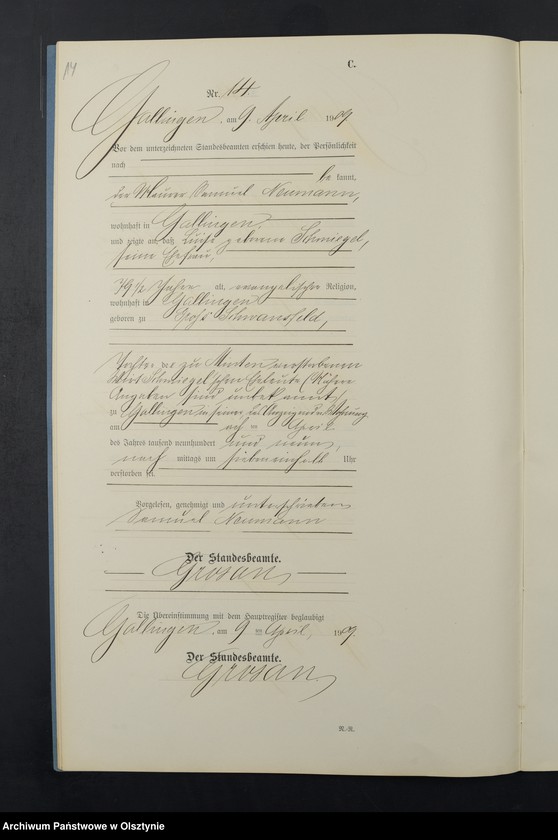 14
C.
Nr. 14.
Gallingen, am 9. April 1909
Vor dem unterzeichneten Standesbeamten erschien heute, der Persönlichkeit
nach
be kannt,
der Maurer Samuel Neumann,
wohnhaft in Gallingen,
und zeigte an, daß Luise geborene Schmiegel,
seine Ehefrau,
79 1/2 Jahre alt, evangelischer Religion,
wohnhaft in Gallingen
geboren zu Groß Schwansfeld,
Tochter der zu verstorbenen
Schmiegel'schen Eheleute (Nähere
Angaben sind unbekannt)
zu Gallingen in seiner, des Anzeigenden Wohnung
am acht en April
des Jahres tausend neunhundert und neun,
nach mittags um siebeneinhalb Uhr
verstorben sei.
Vorgelesen, genehmigt und unterschrieben
Samuel Neumann
Der Standesbeamte.
Grosan
Die Übereinstimmung mit dem Hauptregister beglaubigt
Gallingen, am 9 ten April, 1909
Der Standesbeamte.
Grosan
Archiwum Państwowe w Olsztynie